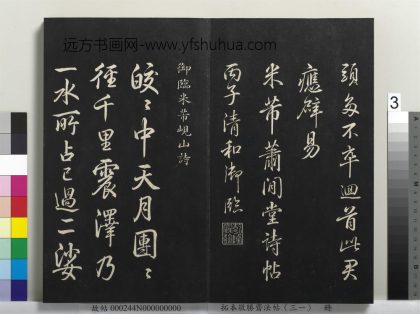 远方书画网- www.yfshuhua.com
頭多不卒迴首此君
應辟易
米芾蕭閒堂詩帖
丙子清和御臨
御臨米芾峴山詩
皎〻中天月團〻
徑千里震澤乃
一水所占已過二娑
3
故帖 000244N000000000
拓本敬勝齋法帖（三一） 冊